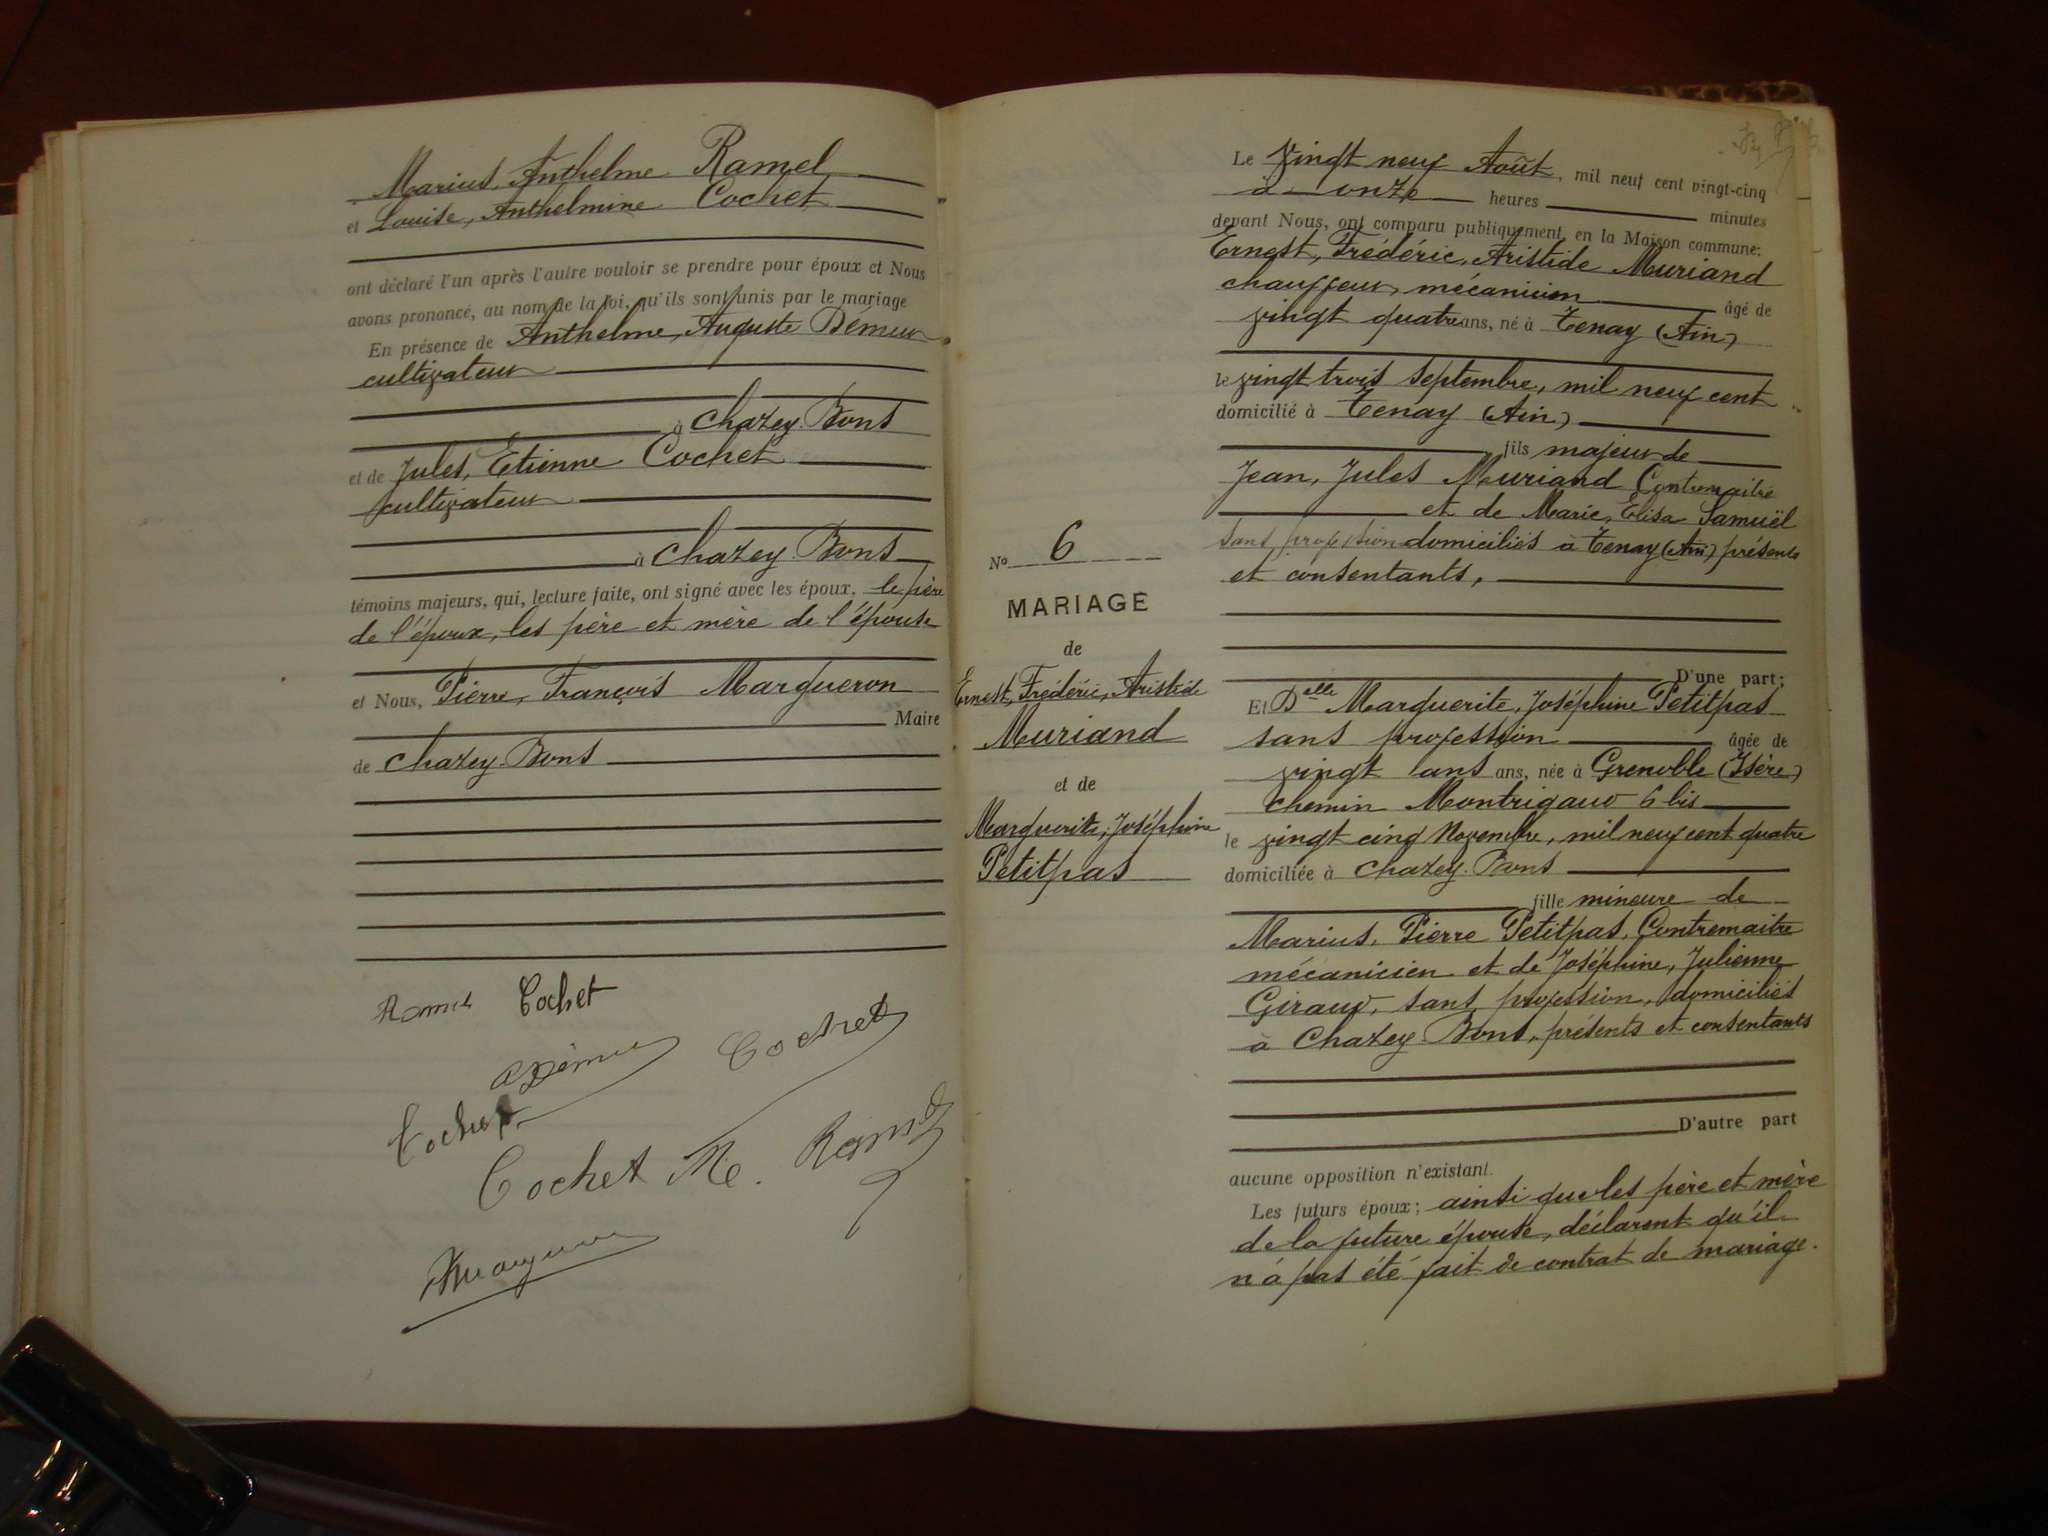 Marius, Anthelme Ramel
et Louise, Anthelmine Cochet
ont déclaré l'un après l'autre vouloir se prendre pour époux et Nous
avons prononcé, au nom de la loi, qu'ils sont unis par le mariage
En présence de Anthelme, Auguste Démeur
cultivateur
à Chazey-Bons
et de Jules, Etienne Cochet
cultivateur
à Chazey-Bons
témoins majeurs, qui, lecture faite, ont signé avec les époux, le père
de l'époux, les père et mère de l'épouse
et Nous, Pierre, François Margueron
Maire
de Chazey-Bons
Ramel Cochet
Cochet
Cochet
Cochet Me. Ramel
Le vingt neuf Août, mil neuf cent vingt-cinq
à onze heures minutes
devant Nous, ont comparu publiquement, en la Maison commune:
Ernest, Frédéric, Aristide Muriand
chauffeur mécanicien âgé de
vingt quatre ans, né à Tenay (Ain)
le vingt trois septembre, mil neuf cent
domicilié à Tenay (Ain)
fils majeur de
Jean, Jules Muriand Contremaitre
et de Marie, Elisa Samuël
sans profession domiciliés à Tenay (Ain) présents
et consentants,
D'une part;
Et Delle Marguerite, Joséphine Petitpas
sans profession âgée de
vingt ans ans, née à Grenoble (Isère)
chemin Montrigaud 6 bis
le vingt cinq Novembre, mil neuf cent quatre
domiciliée à Chazey-Bons
fille mineure de
Marius, Pierre Petitpas, Contremaitre
mécanicien et de Joséphine, Julienne
Giraud, sans profession, domiciliés
à Chazey Bons, présents et consentants
D'autre part
aucune opposition n'existant.
Les futurs époux; ainsi que les père et mère
de la future épouse, déclarent qu'il
n'a pas été fait de contrat de mariage.
No 6
MARIAGE
de
Ernest, Frédéric, Aristide
Muriand
et de
Marguerite, Joséphine
Petitpas